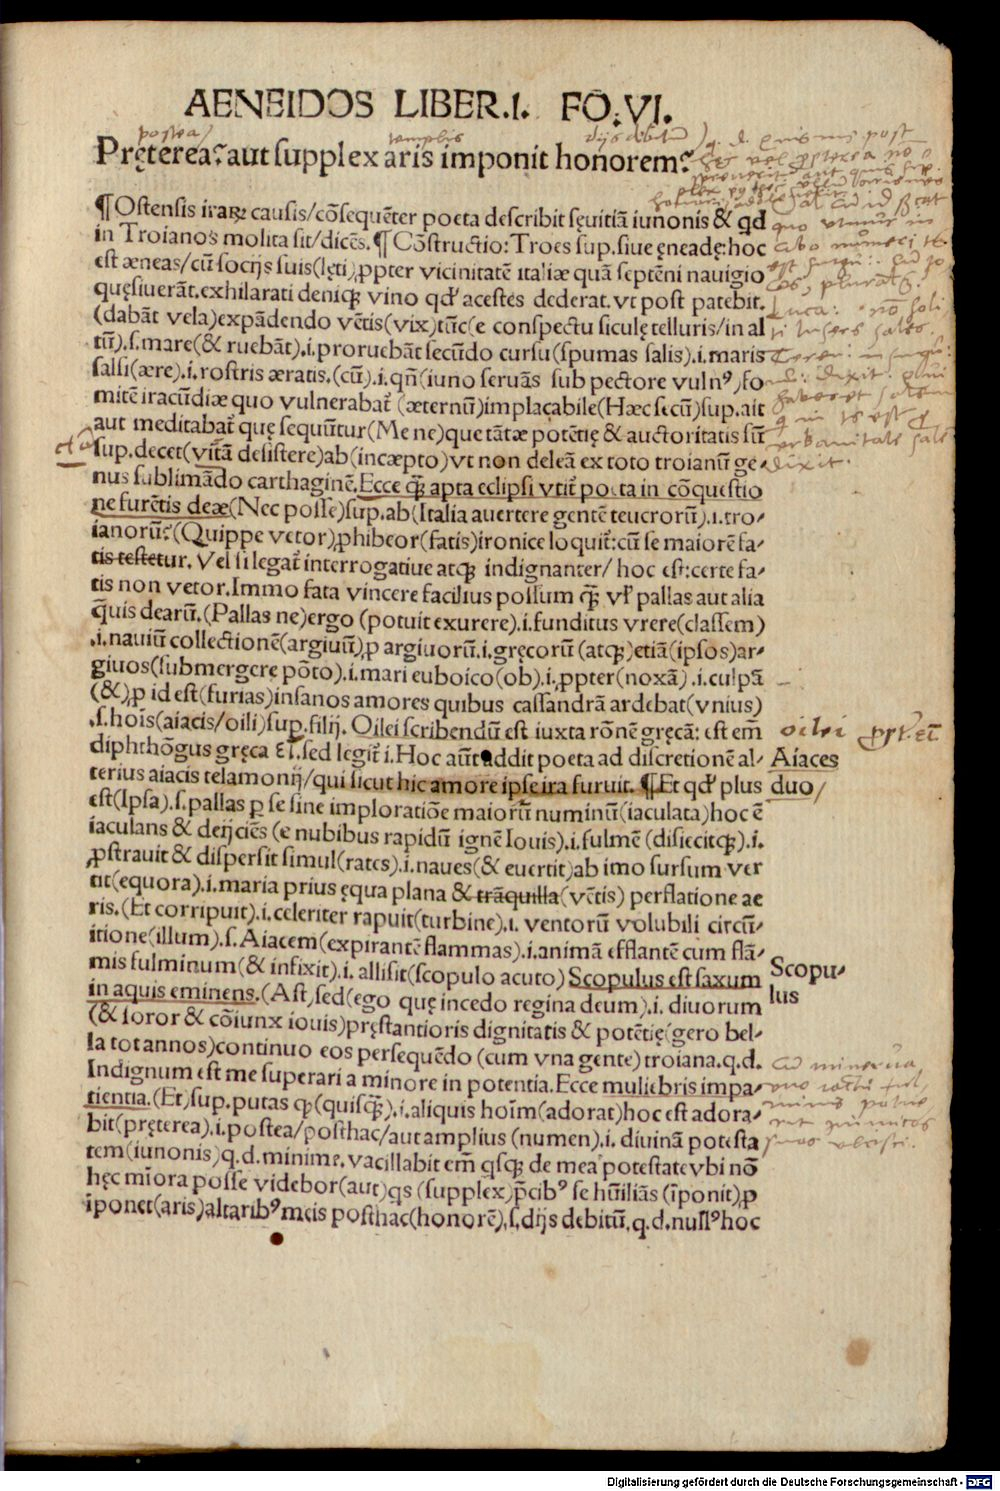 AENEIDOS LIBER.I. FŌ.VI.
postea templis dijs debitum
Pręterea? aut supplex aris imponit honorem?
¶Ostensis iraꝝ causis/cōsequēter poeta describit sęuitiā iunonis & qd
in Troianos molita sit/dicēs.¶Cōstructio:Troes sup.siue ęneadę:hoc
est æneas/cū socijs suis(lęti)ꝓpter vicinitatē italiæ quā septēni nauigio
quęsiuerāt.exhilarati deniqꝫ vino qđ acestes dederat.vt post patebit.
(dabāt vela)expādendo vētis(vix)tūc(e conspectu siculę telluris/in al
tū).s.mare(& ruebāt).i.proruebāt secūdo cursu(spumas salis).i.maris
salsi(ære).i.rostris æratis.(cū).i.qn̄(iuno seruās sub pectore vulnꝰ)fo
mitē iracūdiæ quo vulnerabat̄ (æternū)implacabile(Hæc secū)sup.ait
aut meditabat̄ quę sequūtur(Me ne)que tātæ potētię & auctoritatis sū
sup.decet(vītā desistere)ab(incæpto)vt non deleā ex toto troianū ge-
nus sublimādo carthaginē.Ecce qꝫ̄ apta eclipsi vtit̄ poeta in cōquestio
ne furētis deæ(Nec posse)sup.ab(Italia auertere gentē teucrorū).i.tro-
ianorū?(Quippe vetor)ꝓhibeor(fatis)ironice loquit̄:cū se maiorē fa-
tis testetur. Vel si legat̄ interrogatiue atqꝫ indignanter/ hoc est:certe fa-
tis non vetor.Immo fata vincere facilius possum qꝫ̄ vł pallas aut alia
q̄uis dearū.(Pallas ne)ergo (potuit exurere).i.funditus vrere(classem)
.i.nauiū collectionē(argiuū)ꝓ argiuorū.i.gręcorū (atqꝫ)etiā(ipsos)ar-
giuos(submergere pōto).i.mari euboico(ob).i.ꝓpter(noxā).i.culpā
(&)ꝓ id est(furias)insanos amores quibus cassandrā ardebat(vnius)
.s.hoīs(aiacis/oili)sup.filij. Oilei scribendū est iuxta rōnē gręcā: est em̄
diphthōgus gręca ει.sed legit̄ i.Hoc aūt addit poeta ad discretionē al-
terius aiacis telamonij/qui sicut hic amore ipse ira furuit. ¶Et qđ plus
est(Ipsa).s.pallas ꝑ se sine imploratiōe maiorū numinū(iaculata)hoc ē
iaculans & deijciēs (e nubibus rapidū ignē Iouis).i.fulmē (disiecitqꝫ).i.
ꝓstrauit & dispersit simul(rates).i.naues(& euertit)ab imo sursum ver
tit(equora).i.maria prius ęqua plana & trāquilla(vētis) perflatione ae
ris.(Et corripuit).i.celeriter rapuit(turbine).i. ventorū volubili circū-
itione(illum).s.Aiacem(expirantē flammas).i.animā efflantē cum flā-
mis fulminum(& infixit).i.allisit(scopulo acuto) Scopulus est saxum
in aquis eminens.(Ast)sed(ego quę incedo regina deum).i. diuorum
(& soror & cōiunx iouis)pręstantioris dignitatis & potētię(gero bel-
la tot annos)continuo eos persequēdo (cum vna gente) troiana.q.d.
Indignum est me superari a minore in potentia.Ecce muliebris impa-
tientia.(Et)sup.putas qꝫ(quisqꝫ̄).i.aliquis hoīm(adorat)hoc est adora-
bit(pręterea).i.postea/posthac/aut amplius (numen).i. diuinā potesta
tem(iunonis)q.d.minime.vacillabit em̄ qsqꝫ de mea potestate vbi nō
hęc mīora posse videbor(aut)qs (supplex)p̄cibꝰ se hūiliās (īponit)ꝓ
īponet(aris)altaribꝰ meis posthac(honorē).s.dijs debitū.q.d.nullꝰ hoc
oilei
Aiaces
duo/
Scopu-
lus
Digitalisierung gefördert durch die Deutsche Forschungsgemeinschaft - DFG